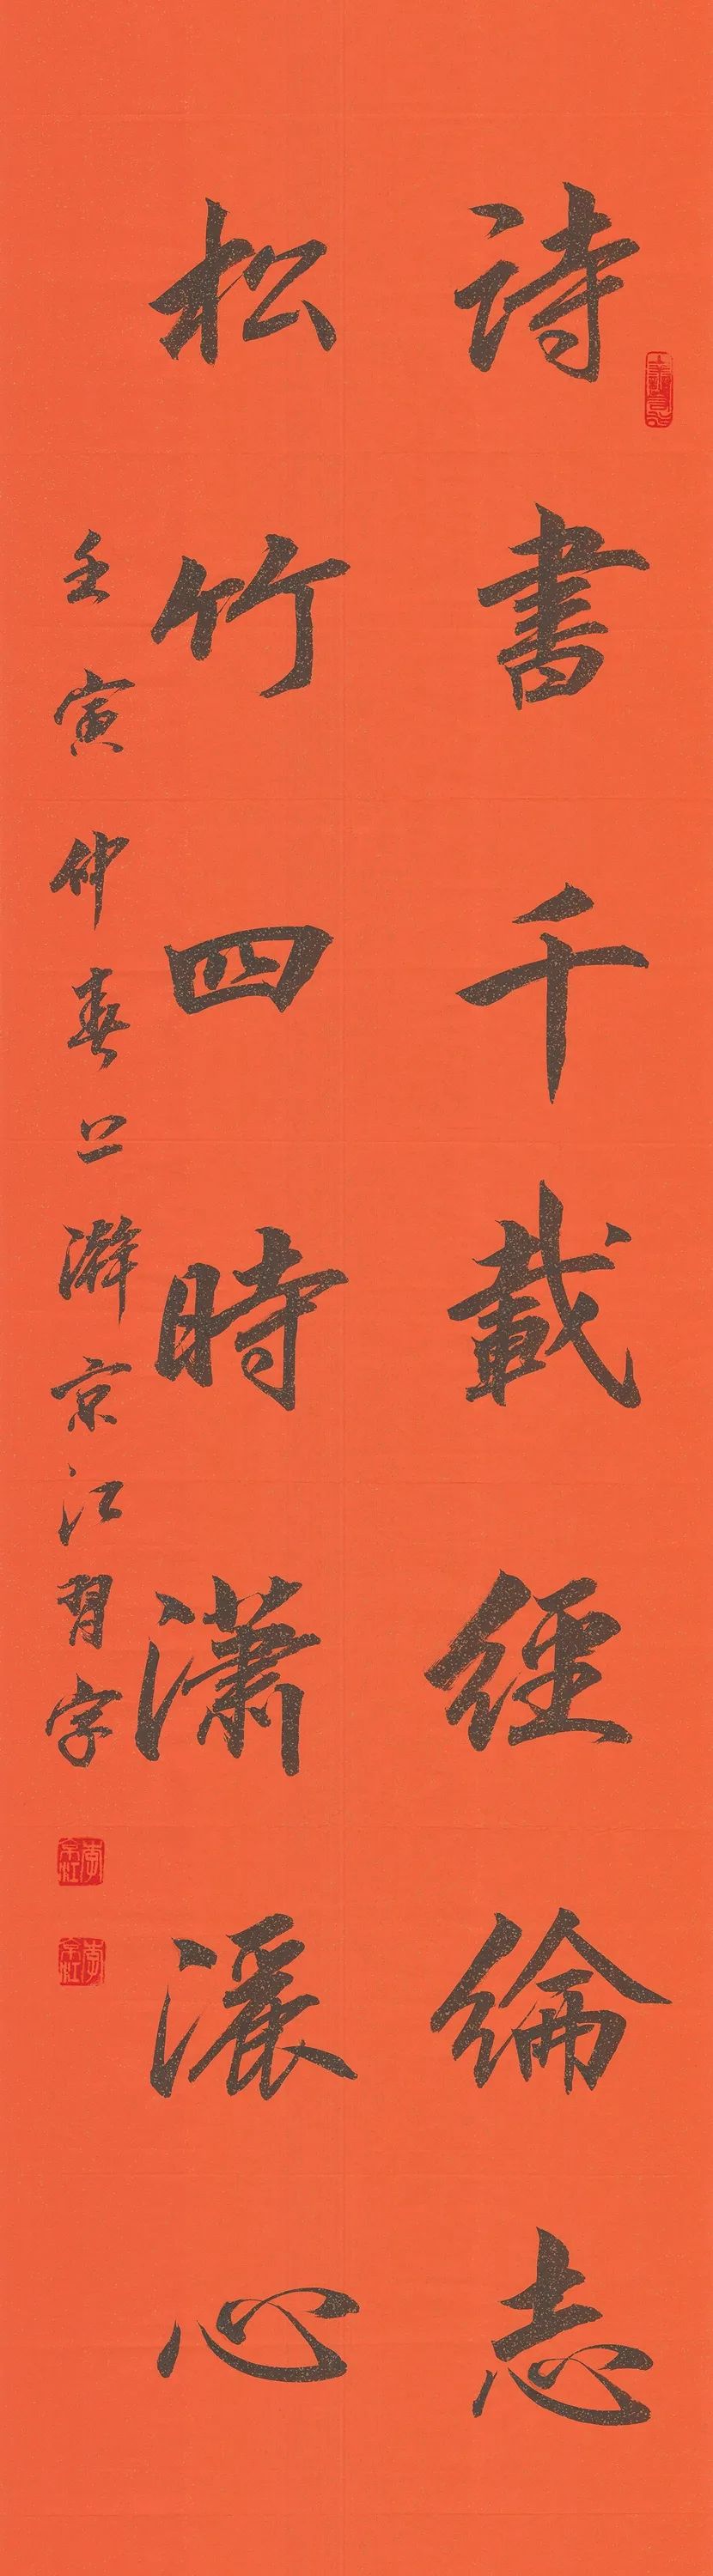 詩書千載經綸志
松竹四時瀟灑心
壬寅仲春上澣京江習字